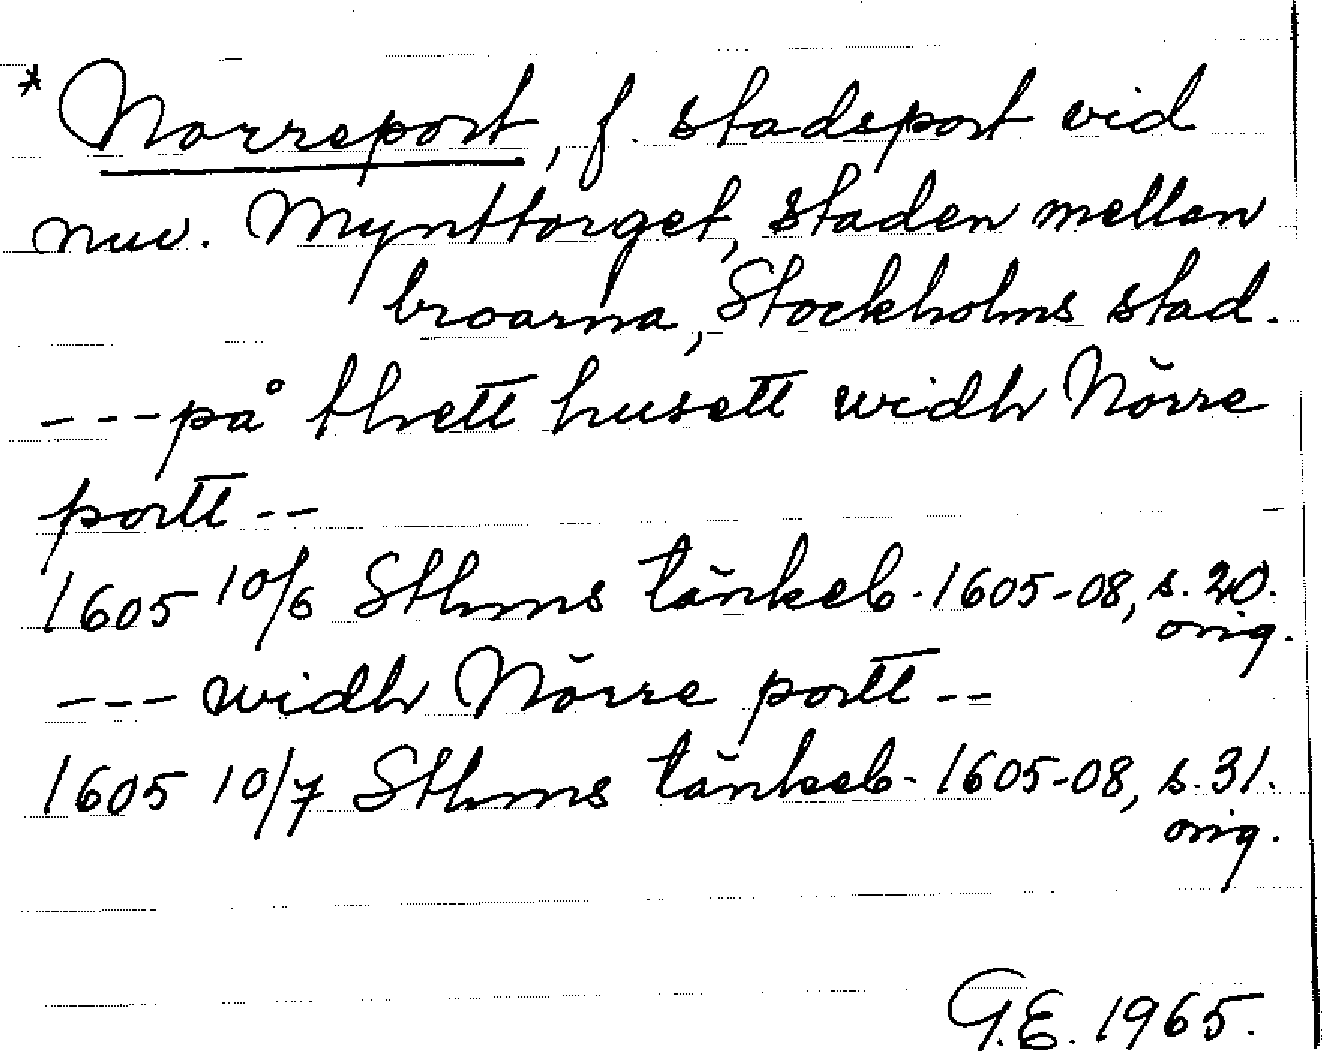 * Norreport, f. stadsport vid
nuv. Mynttorget, staden mellan
broarna, Stockholms stad.
---på thett husett widh Nörre
portt--
1605 10/6 Sthms tänkeb. 1605-08, s. 20.
orig.
--- widh Nörre portt --
1605 10/7 Sthms tänkeb. 1605-08, s. 31.
orig.
G.E. 1965.